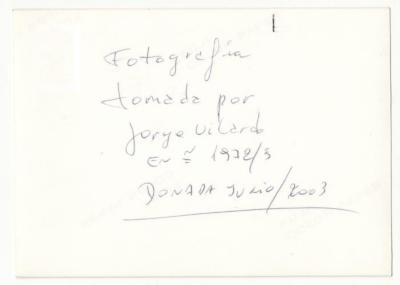 Fotografía
tomada por
Jorge Vilardo
EN ≃ 1972/3
DONADA JUNIO/2003